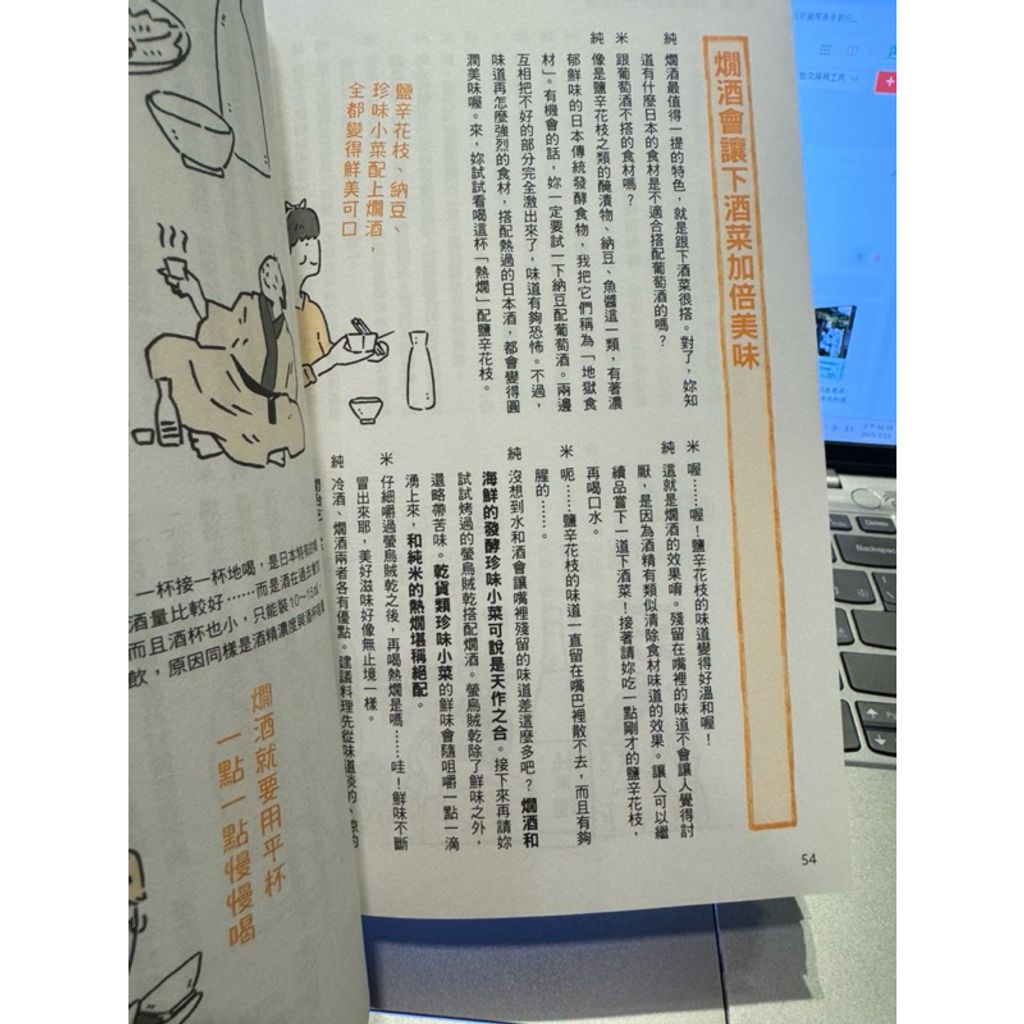 燗酒會讓下酒菜加倍美味
純 燗酒最值得一提的特色，就是跟下酒菜很搭。對了，妳知
道有什麼日本的食材是不適合搭配葡萄酒的嗎？
米 跟葡萄酒不搭的食材嗎？
純 像是鹽辛花枝之類的醃漬物、納豆、魚醬這一類，有著濃
郁鮮味的日本傳統發酵食物，我把它們稱為「地獄食
材」。有機會的話，妳一定要試一下納豆配葡萄酒。兩邊
互相把不好的部分完全激出來了，味道有夠恐怖。不過，
味道再怎麼強烈的食材，搭配熱過的日本酒，都會變得圓
潤美味喔。來，妳試試看喝這杯「熱燗」配鹽辛花枝。
鹽辛花枝、納豆、
珍味小菜配上燗酒，
全都變得鮮美可口
米 喔……喔！鹽辛花枝的味道變得好溫和喔！
純 這就是燗酒的效果唷。殘留在嘴裡的味道不會讓人覺得討
厭，是因為酒精有類似清除食材味道的效果。讓人可以繼
續品嘗下一道下酒菜！接著請妳吃一點剛才的鹽辛花枝，
再喝口水。
米 呃……鹽辛花枝的味道一直留在嘴巴裡散不去，而且有夠
腥的……。
純 沒想到水和酒會讓嘴裡殘留的味道差這麼多吧？燗酒和
海鮮的發酵珍味小菜可說是天作之合。接下來再請妳
試試烤過的螢烏賊乾搭配燗酒。螢烏賊乾除了鮮味之外，
還略帶苦味。乾貨類珍味小菜的鮮味會隨咀嚼一點一滴
湧上來，和純米的熱燗堪稱絕配。
米 仔細嚼過螢烏賊乾之後，再喝熱燗是嗎……哇！鮮味不斷
冒出來耶，美好滋味好像無止境一樣。
純 冷酒、燗酒兩者各有優點。建議料理先從味道淡的、涼的
54
一杯接一杯地喝，是日本特有的喝
酒量比較好……而是酒在過去會
而且酒杯也小，只能裝10～15ml，
飲，原因同樣是酒精濃度與酒杯容量
燗酒就要用平杯
一點一點慢慢喝
Delete
Backspace